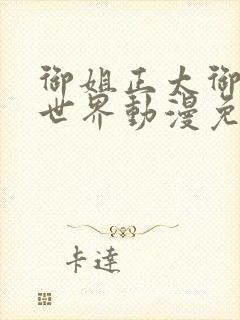 御姐正大御
世界動漫免
卡達